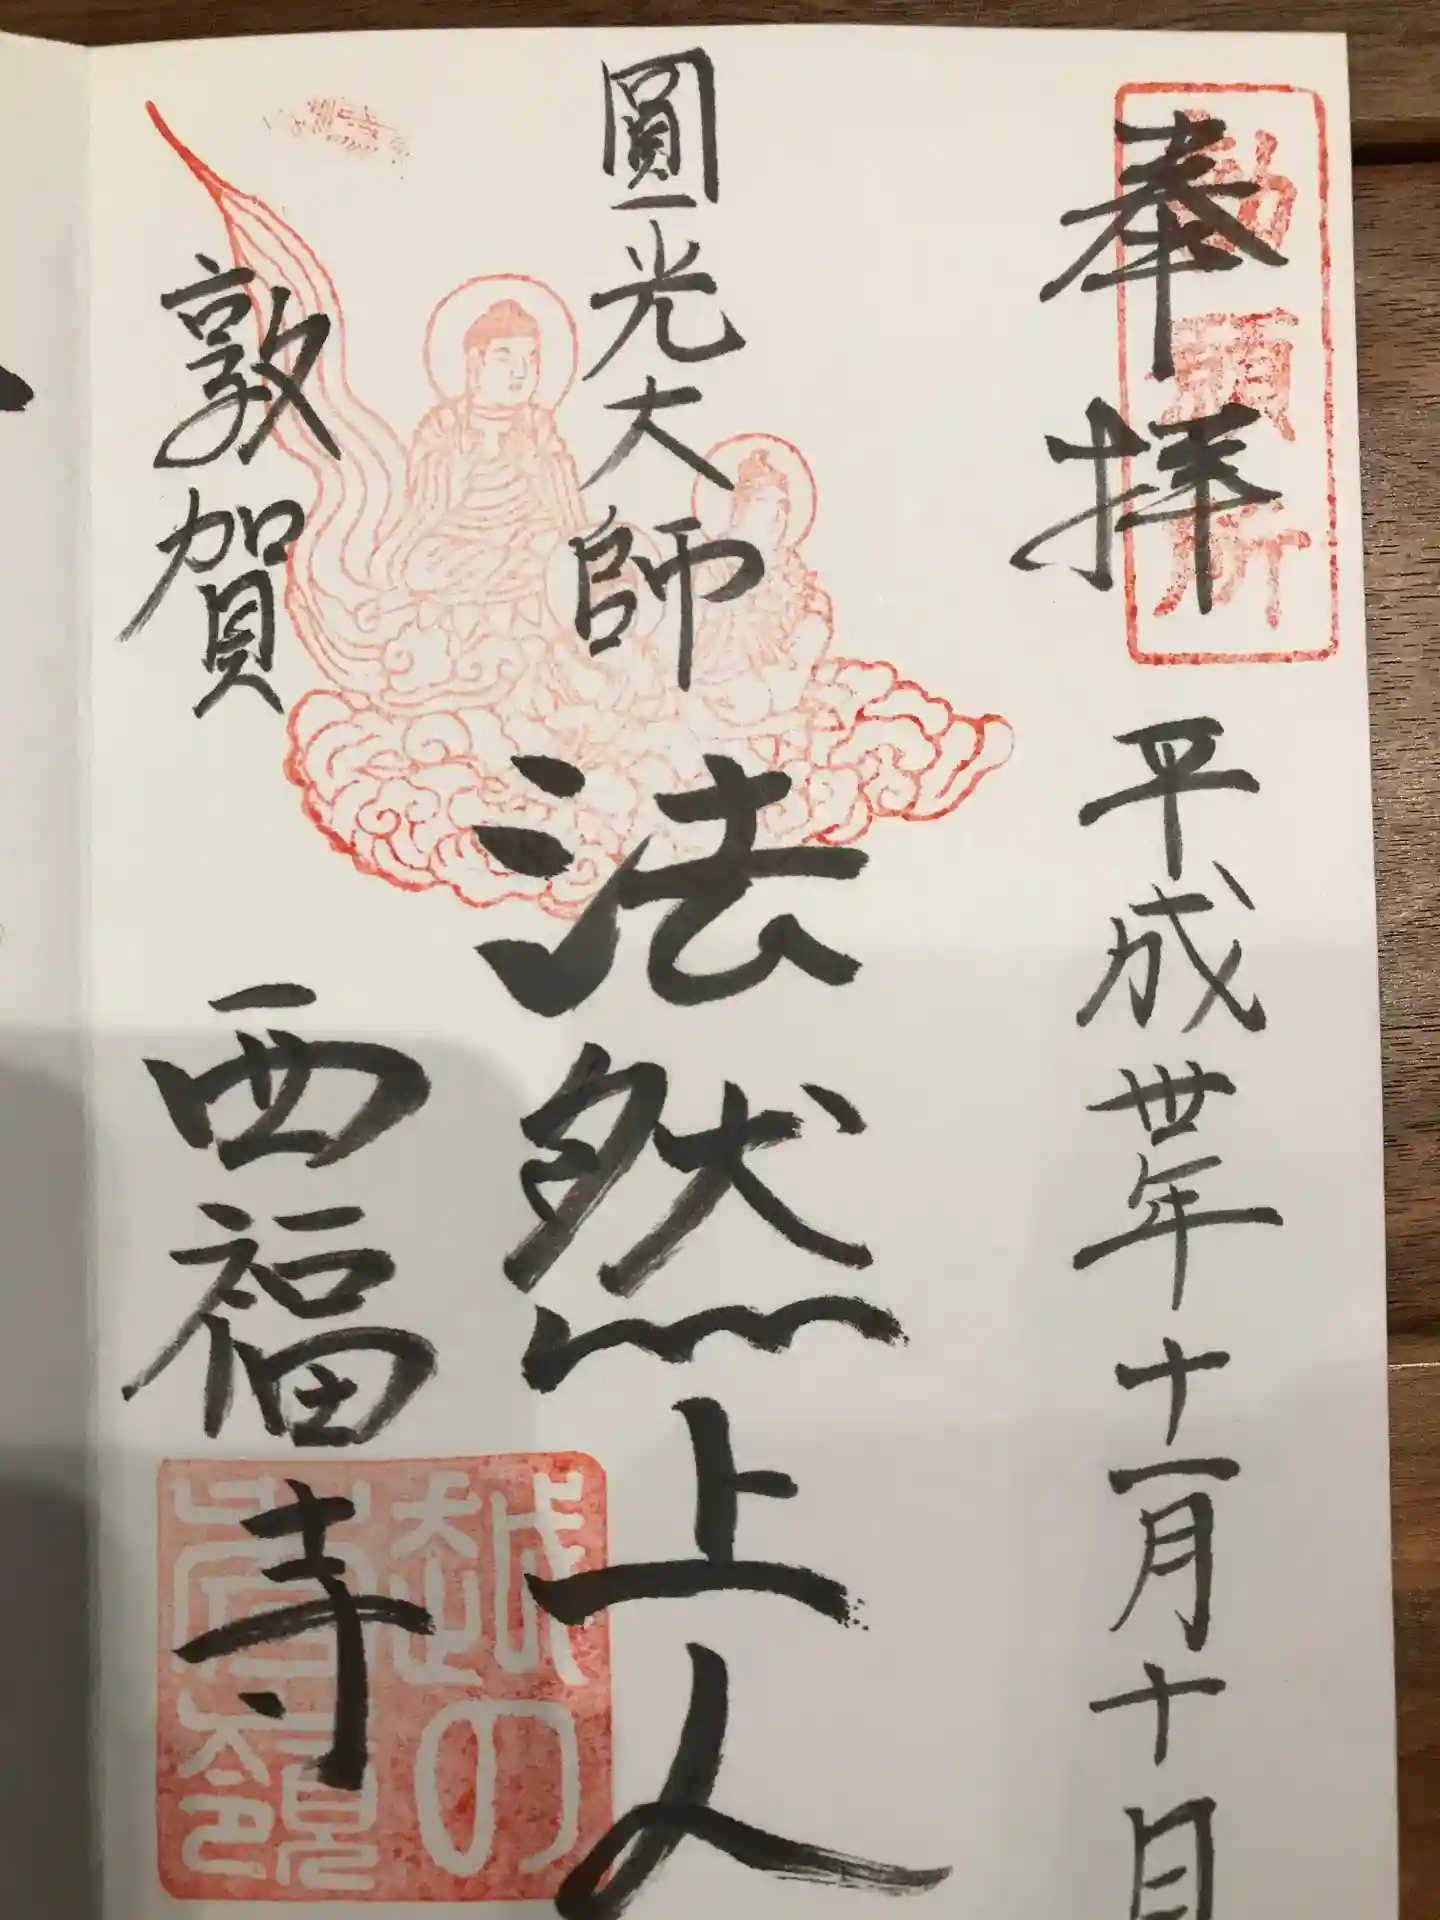 奉拝
勅願所
平成丗年十一月十日
圓光大師
法然上人
敦賀
西福寺
越の秀嶺